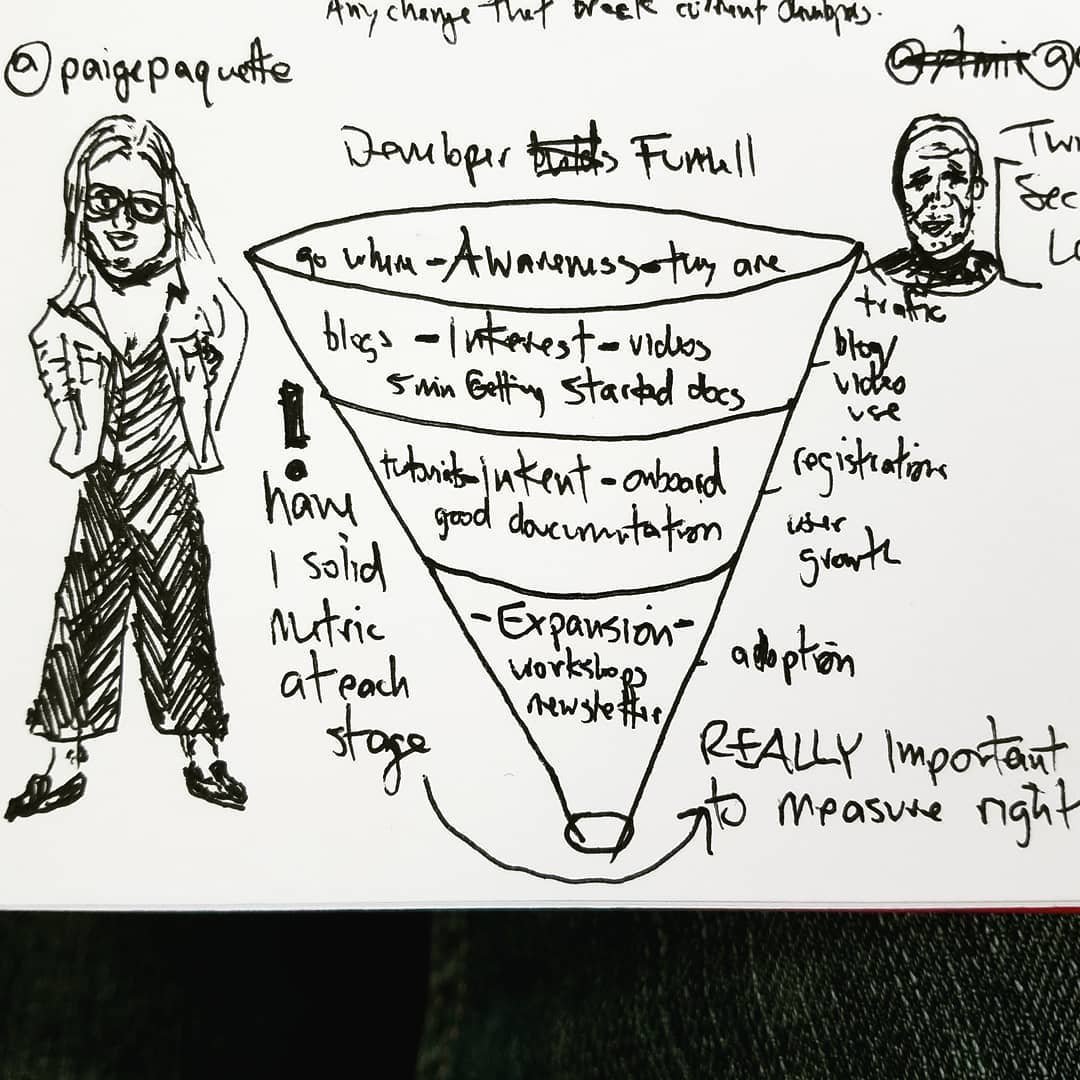 Any change that break current
@paigepaquette
Developer Funnell
go where - Awareness - they are
blogs - Interest - videos
5 min Getting Started docs
tutorials - intent - onboard
good documentation
- Expansion -
workshops
newsletter
!
have
1 solid
metric
at each
stage
trafic
blog/
video
use
registrations
user
growth
adoption
REALLY Important
to measure right
Sec